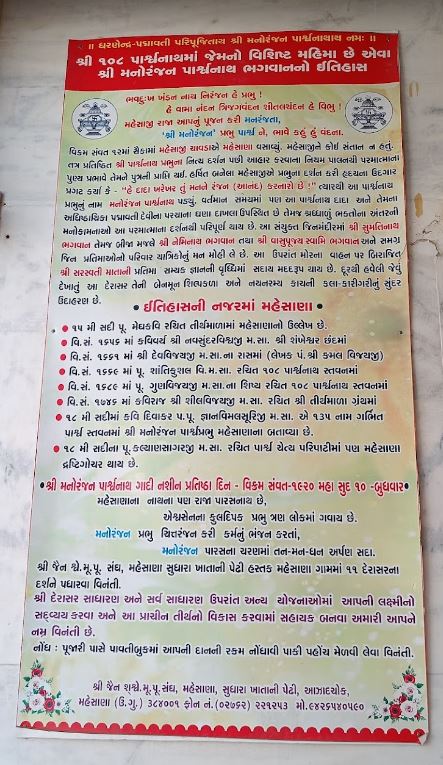 ॥ ધરણેન્દ્ર-પદ્માવતી પરિપૂજિતાય શ્રી મનોરંજન પાર્શ્વનાથાય નમઃ ॥
શ્રી ૧૦૮ પાર્શ્વનાથમાં જેમનો વિશિષ્ટ મહિમા છે એવા
શ્રી મનોરંજન પાર્શ્વનાથ ભગવાનનો ઈતિહાસ
ભવદુઃખ ખંડન નાથ નિરંજન હે પ્રભુ !
હે વામા નંદન ત્રિજગવંદન શીતલચંદન હે વિભુ !
મહેસાજી રાજા આપનું પૂજન કરી મનરંજતા,
'શ્રી મનોરંજન' પ્રભુ પાર્શ્વ ને, ભાવે કહું હું વંદના.
વિક્રમ સંવત ૧૨માં સૈકામાં મહેસાજી ચાવડાએ મહેસાણા વસાવ્યું. મહેસાજીને કોઈ સંતાન ન હતું.
તત્ર પ્રતિષ્ઠિત શ્રી પાર્શ્વનાથ પ્રભુના નિત્ય દર્શન પછી આહાર કરવાના નિયમ પાલનથી પરમાત્માના
પુણ્ય પ્રભાવે તેમને પુત્રની પ્રાપ્તિ થઈ. હર્ષિત બનેલા મહેસાજીએ પ્રભુના દર્શન કરી હૃદયના ઉદગાર
પ્રગટ કર્યા કે - "હે દાદા ખરેખર તું મનને રંજન (આનંદ) કરનારો છે !" ત્યારથી આ પાર્શ્વનાથ
પ્રભુનું નામ મનોરંજન પાર્શ્વનાથ પડ્યું. વર્તમાન સમયમાં પણ આ પાર્શ્વનાથ દાદા અને તેમના
અધિષ્ઠાયિકા પદ્માવતી દેવીના પરચાના ઘણા દાખલા ઉપસ્થિત છે તેમજ શ્રધ્ધાળું ભક્તોના અંતરની
મનોકામનાઓ આ પરમાત્માના દર્શનથી પરિપૂર્ણ થાય છે. આ સંયુક્ત જિનમંદીરમાં શ્રી સુમતિનાથ
ભગવાન તેમજ બીજા મજલે શ્રી નેમિનાથ ભગવાન તથા શ્રી વાસુપૂજ્ય સ્વામિ ભગવાન અને સમગ્ર
જિન પ્રતિમાઓનો પરિવાર યાત્રિકોનું મન મોહી લે છે. આ ઉપરાંત મોરના વાહન પર બિરાજિત
શ્રી સરસ્વતી માતાની પ્રતિમા સમ્યક જ્ઞાનની વૃધ્ધિમાં સદાય મદદરૂપ થાય છે. દૂરથી હવેલી જેવું
દેખાતું આ દેરાસર તેની બેનમૂન શિલ્પકળા અને નયનરમ્ય કાચની કલા-કારીગરીનું સુંદર
ઉદાહરણ છે.
• ઈતિહાસની નજરમાં મહેસાણા •
● ૧૫ મી સદી પૂ. મેઘકવિ રચિત તીર્થમાળામાં મહેસાણાનો ઉલ્લેખ છે.
● વિ.સં. ૧૬૫૬ માં કવિવર્ય શ્રી નયસુંદરવિજી મ.સા. શ્રી શંખેશ્વર છંદમાં
● વિ.સં. ૧૬૬૧ માં શ્રી દેવવિજયજી મ.સા.ના રાસમાં (લેખક પં.શ્રી કમલ વિજયજી)
● વિ.સં. ૧૬૬૯ માં પૂ. શાંતિકુશલ વિ.મ.સા. રચિત ૧૦૮ પાર્શ્વનાથ સ્તવનમાં
● વિ.સં. ૧૬૮૯ માં પૂ. ગુણવિજયજી મ.સા.ના શિષ્ય રચિત ૧૦૮ પાર્શ્વનાથ સ્તવનમાં
● વિ.સં. ૧૭૪૬ માં કવિરાજ શ્રી શીલવિજયજી મ.સા. રચિત શ્રી તીર્થમાળા ગ્રંથમાં
● ૧૮ મી સદીમાં કવિ દિવાકર પ.પૂ. જ્ઞાનવિમલસૂરિજી મ.સા. એ ૧૩૫ નામ ગર્ભિત
પાર્શ્વ સ્તવનમાં શ્રી મનોરંજન પાર્શ્વપ્રભુ મહેસાણાના બતાવ્યા છે.
● ૧૮ મી સદીના પૂ.કલ્યાણસાગરજી મ.સા. રચિત પાર્શ્વ ચૈત્ય પરિપાટીમાં પણ મહેસાણા
દ્રષ્ટિગોચર થાય છે.
•શ્રી મનોરંજન પાર્શ્વનાથ ગાદી નશીન પ્રતિષ્ઠા દિન - વિક્રમ સંવત-૧૯૨૦ મહા સુદ ૧૦ -બુધવાર•
મહેસાણાના નાથના પણ રાજા પારસનાથ છે,
એશ્વસેનના કુલદિપક પ્રભુ ત્રણ લોકમાં ગવાય છે.
મનોરંજન પ્રભુ ચિત્તરંજન કરી કર્મનું ભંજન કરતાં,
મનોરંજન પારસના ચરણમાં તન-મન-ધન અર્પણ સદા.
શ્રી જૈન શ્વે.મૂ.પૂ. સંઘ, મહેસાણા સુધારા ખાતાની પેઢી હસ્તક મહેસાણા ગામમાં ૧૧ દેરાસરના
દર્શને પધારવા વિનંતી.
શ્રી દેરાસર સાધારણ અને સર્વ સાધારણ ઉપરાંત અન્ય યોજનાઓમાં આપની લક્ષ્મીનો
સદ્વ્યય કરવા અને આ પ્રાચીન તીર્થનો વિકાસ કરવામાં સહાયક બનવા અમારી આપને
નમ્ર વિનંતી છે.
નોંધ : પૂજારી પાસે પાવતીબુકમાં આપની દાનની રકમ નોંધાવી પાકી પહોંચ મેળવી લેવા વિનંતી.
શ્રી જૈન શ્વે.મૂ.પૂ.સંઘ, મહેસાણા, સુધારા ખાતાની પેઢી, આઝાદચોક,
મહેસાણા (ઉ.ગુ.) ૩૮૪૦૦૧ ફોન નં.(૦૨૭૬૨) ૨૨૧૨૫૩ મો.૯૪૨૬૫૪૦૫૯૦